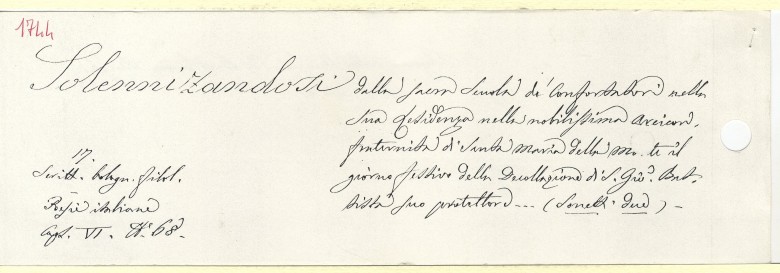 1744
Solennizandosi dalla sacra scuola di Confortatori nella
sua Residenza nella nobilissima Arcicon.
fraternità di Santa Maria della Mo.te il
giorno festivo della Decollazione di S. Gio. Bat-
tista suo protettore --- (Sonetti due) -
17.
Scritt. bologn. filol.
Poesie italiane
Cap. VI. N.° 68.